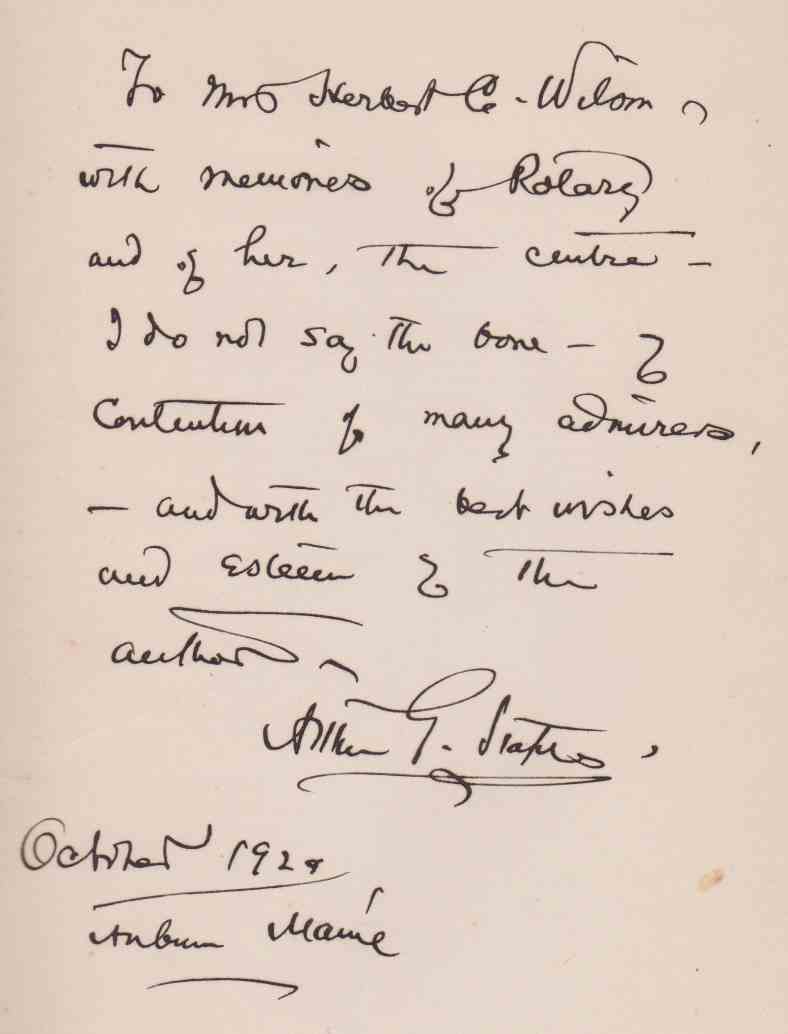 To Mrs Herbert C - Wilson,
with memories of Rotary
and of her, the centre -
I do not say the bone - of
Contention of many admirers,
- and with the best wishes
and Esteem of the
author -
Arthur G. Staples,
October
Auburn Maine